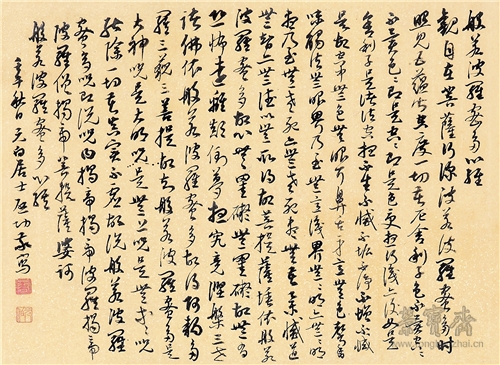 般若波羅蜜多心經
觀自在菩薩行深波若波羅蜜多時
照見五蘊皆空度一切苦厄舍利子色不異空空
不異色色即是空空即是色受想行識亦復如是
舍利子是諸法空相不生不滅不垢不淨不增不減
是故空中無色無眼耳鼻舌身意無色聲香
味觸法無眼界乃至無意識界無無明亦無無明
盡乃至無老死亦無老死盡無苦集滅道
無智亦無得以無所得故菩提薩埵依般若
波羅蜜多故心無罣礙無罣礙故無有
恐怖遠離顛倒夢想究竟涅槃三世
諸佛依般若波羅蜜多故得阿耨多
羅三藐三菩提故知般若波羅蜜多是
大神咒是大明咒是無上咒是無等等咒
能除一切苦真實不虛故說般若波羅
蜜多咒即說咒曰揭帝揭帝波羅揭帝
波羅僧揭帝菩提薩婆訶
般若波羅蜜多心經
秋日元白居士啟功敬寫
榮寶齋